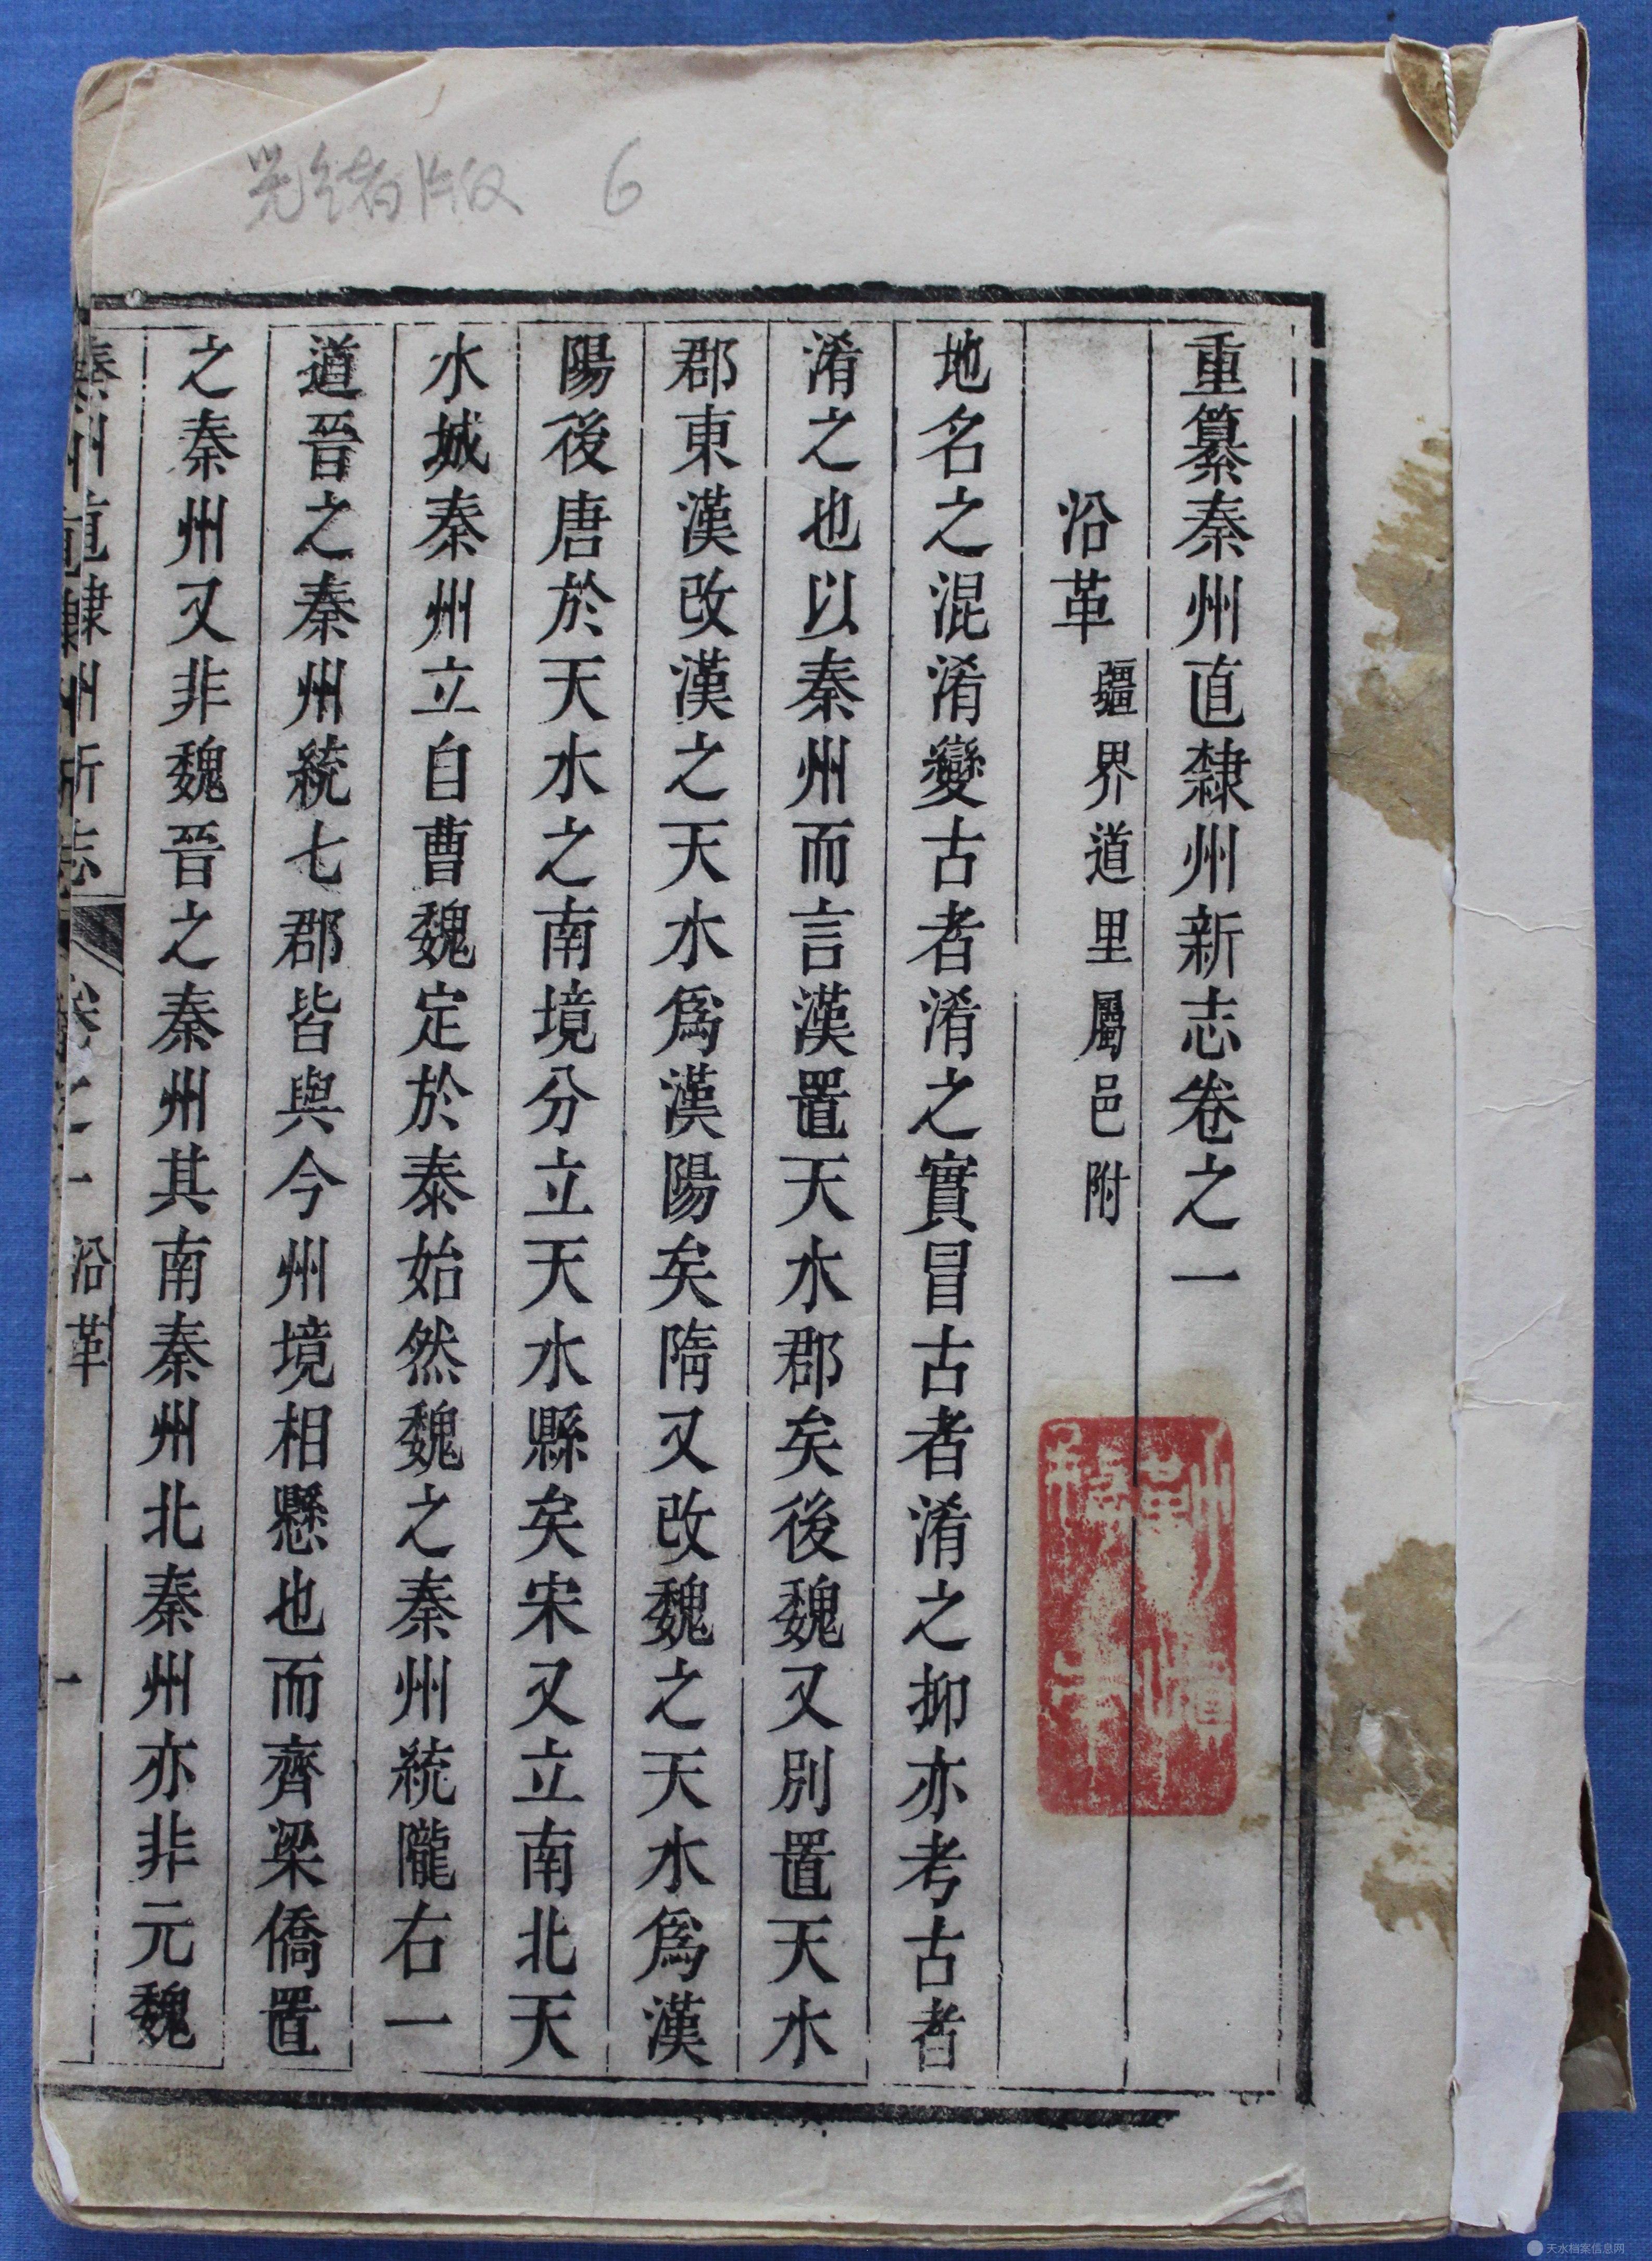 光绪版 6
重纂秦州直隸州新志卷之一
沿革 疆界道里屬邑附
地名之混淆變古者淆之實冒古者淆之抑亦考古者
淆之也以秦州而言漢置天水郡矣後魏又別置天水
郡東漢改漢之天水爲漢陽矣隋又改魏之天水爲漢
陽後唐於天水之南境分立天水縣矣宋又立南北天
水城秦州立自曹魏定於泰始然魏之秦州統隴右一
道晉之秦州統七郡皆與今州境相懸也而齊梁僑置
之秦州又非魏晉之秦州其南秦州北秦州亦非元魏
秦州直隸州新志 卷之一 沿革 一
天水档案信息网